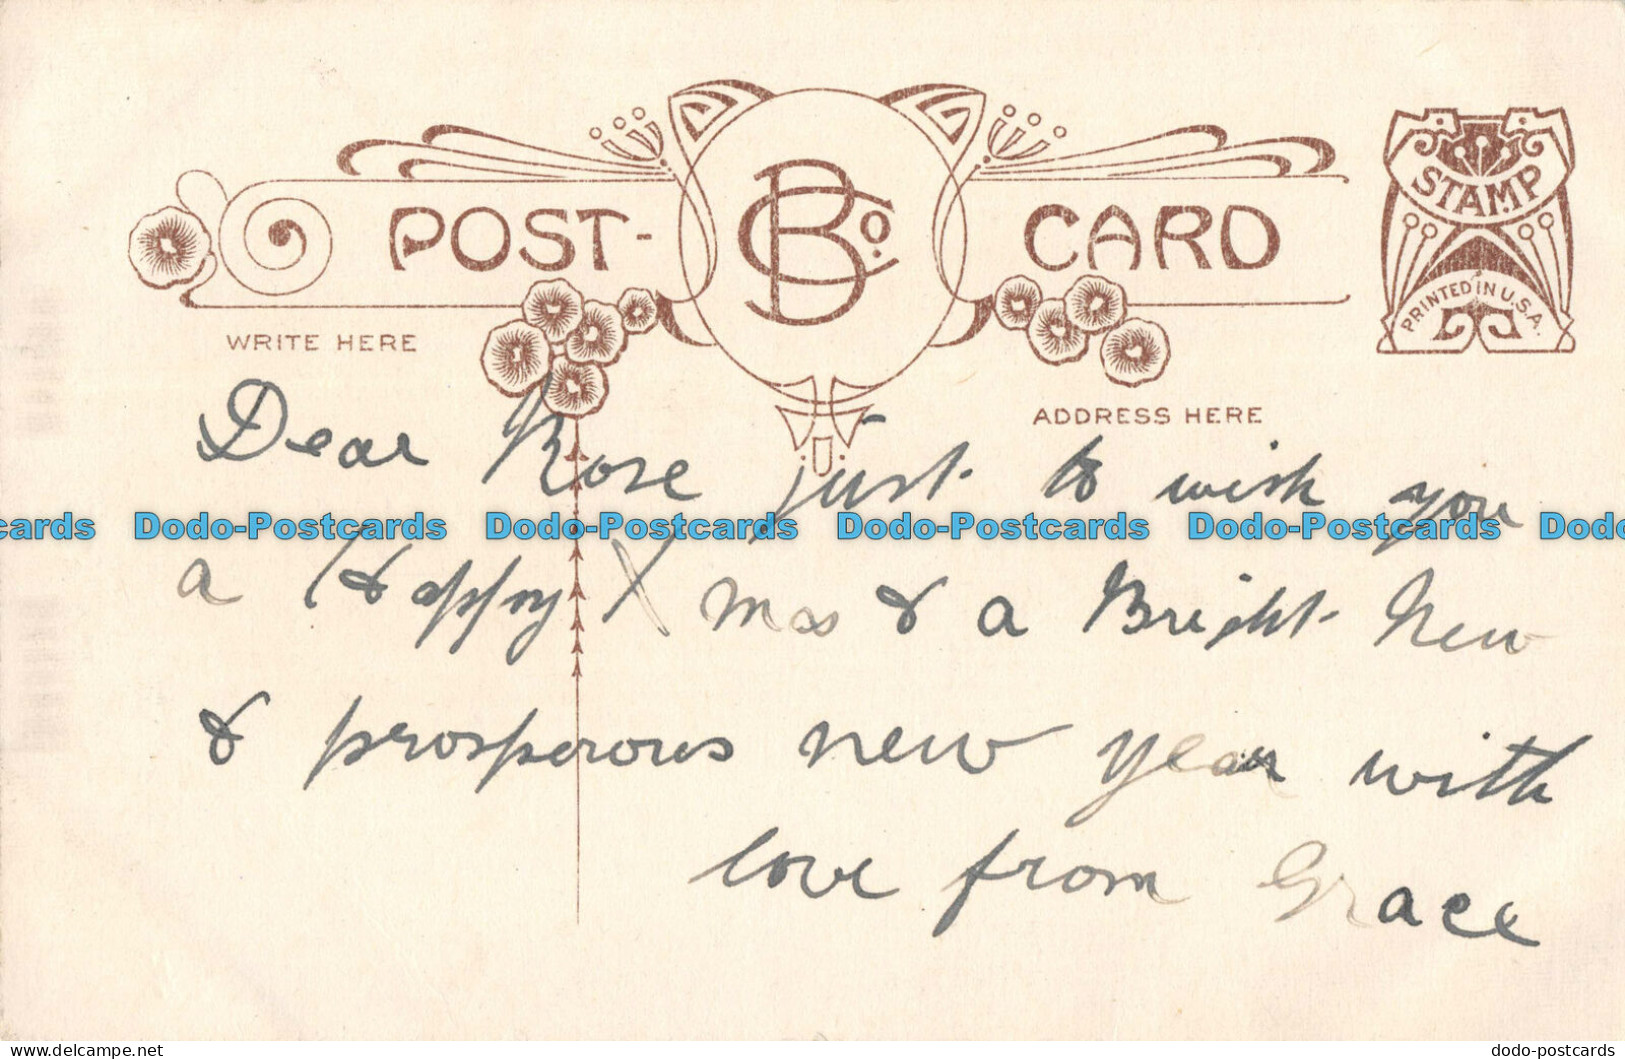 POST- BCo. CARD
STAMP
PRINTED IN U.S.A.
WRITE HERE
ADDRESS HERE
Dear Rose just to wish you
a Happy Xmas & a Bright New
& prosperous new year with
love from Grace
cards Dodo-Postcards Dodo-Postcards Dodo-Postcards Dodo-Postcards Dodo
Delcampe.net
dodo-postcards